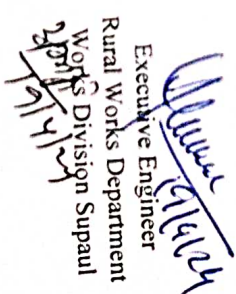 19/4/24
Executive Engineer
Rural Works Department
Works Division Supaul
19/4/24